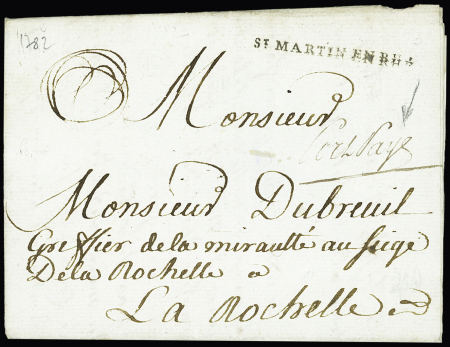 1782
ST MARTIN EN RHÉ
Monsieur
Port Payé
Monsieur Dubreuil
Greffier de la mirautté au siege
De la Rochelle a
La Rochelle